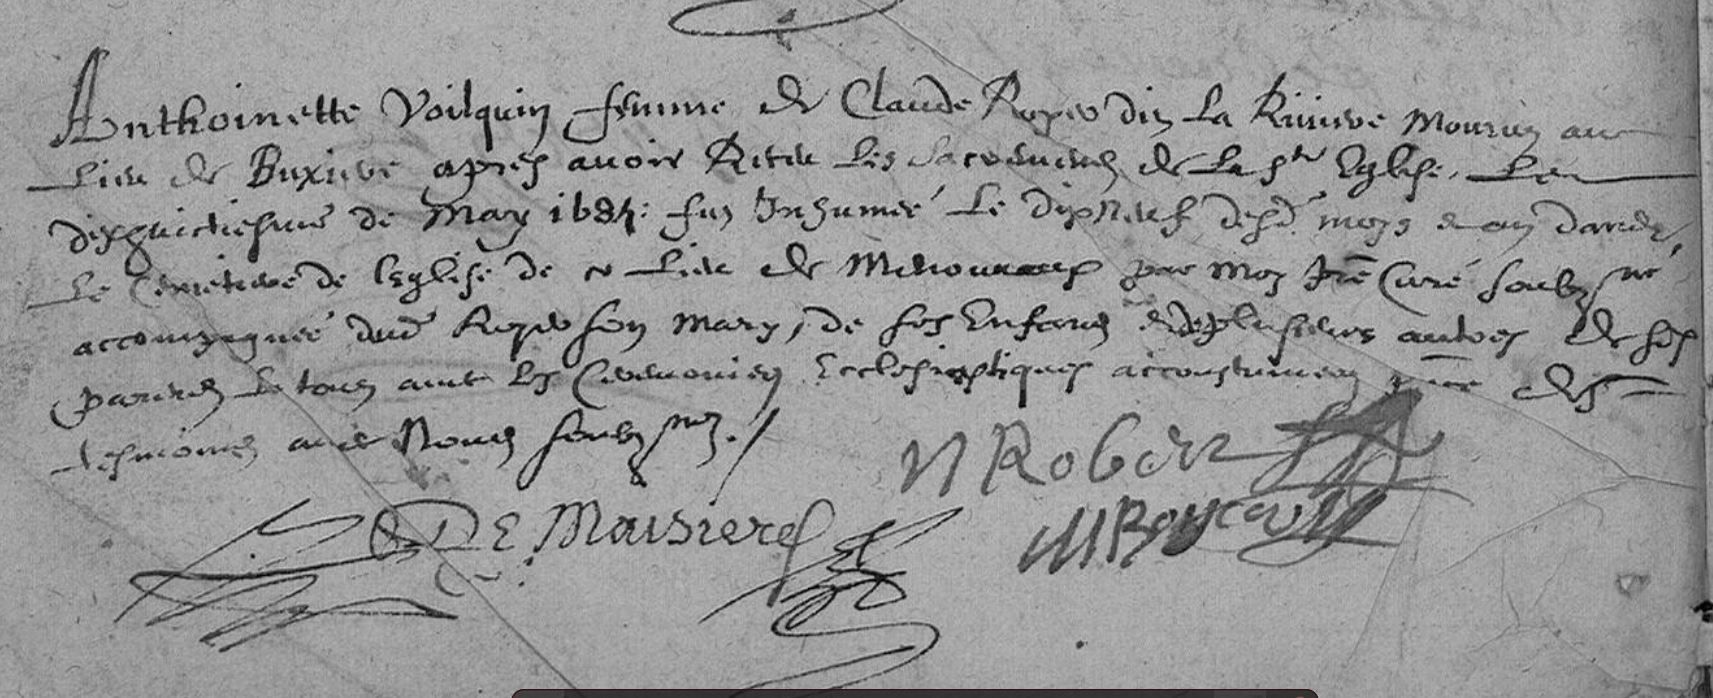 Anthoinette Voilquin femme de Claude Royer dit La Riviere mourut au
Lieu de Buxiere apres avoir Receu les Sacremens de la Ste Eglise, Le
dixhuictiesme de May fut Inhumée Le dixneuf desd. mois & an dans
Le Cemetiere de l'Eglise de ce Lieu de par moy Curé soubsné
accompagnée dud Royer son mary, de ses Enfans & de plusieurs autres de ses
parens le tout avec les Ceremonies Ecclesiastiques accoustumées des
tesmoins avec Nous soubsnez./
N Robert
De Maisieres